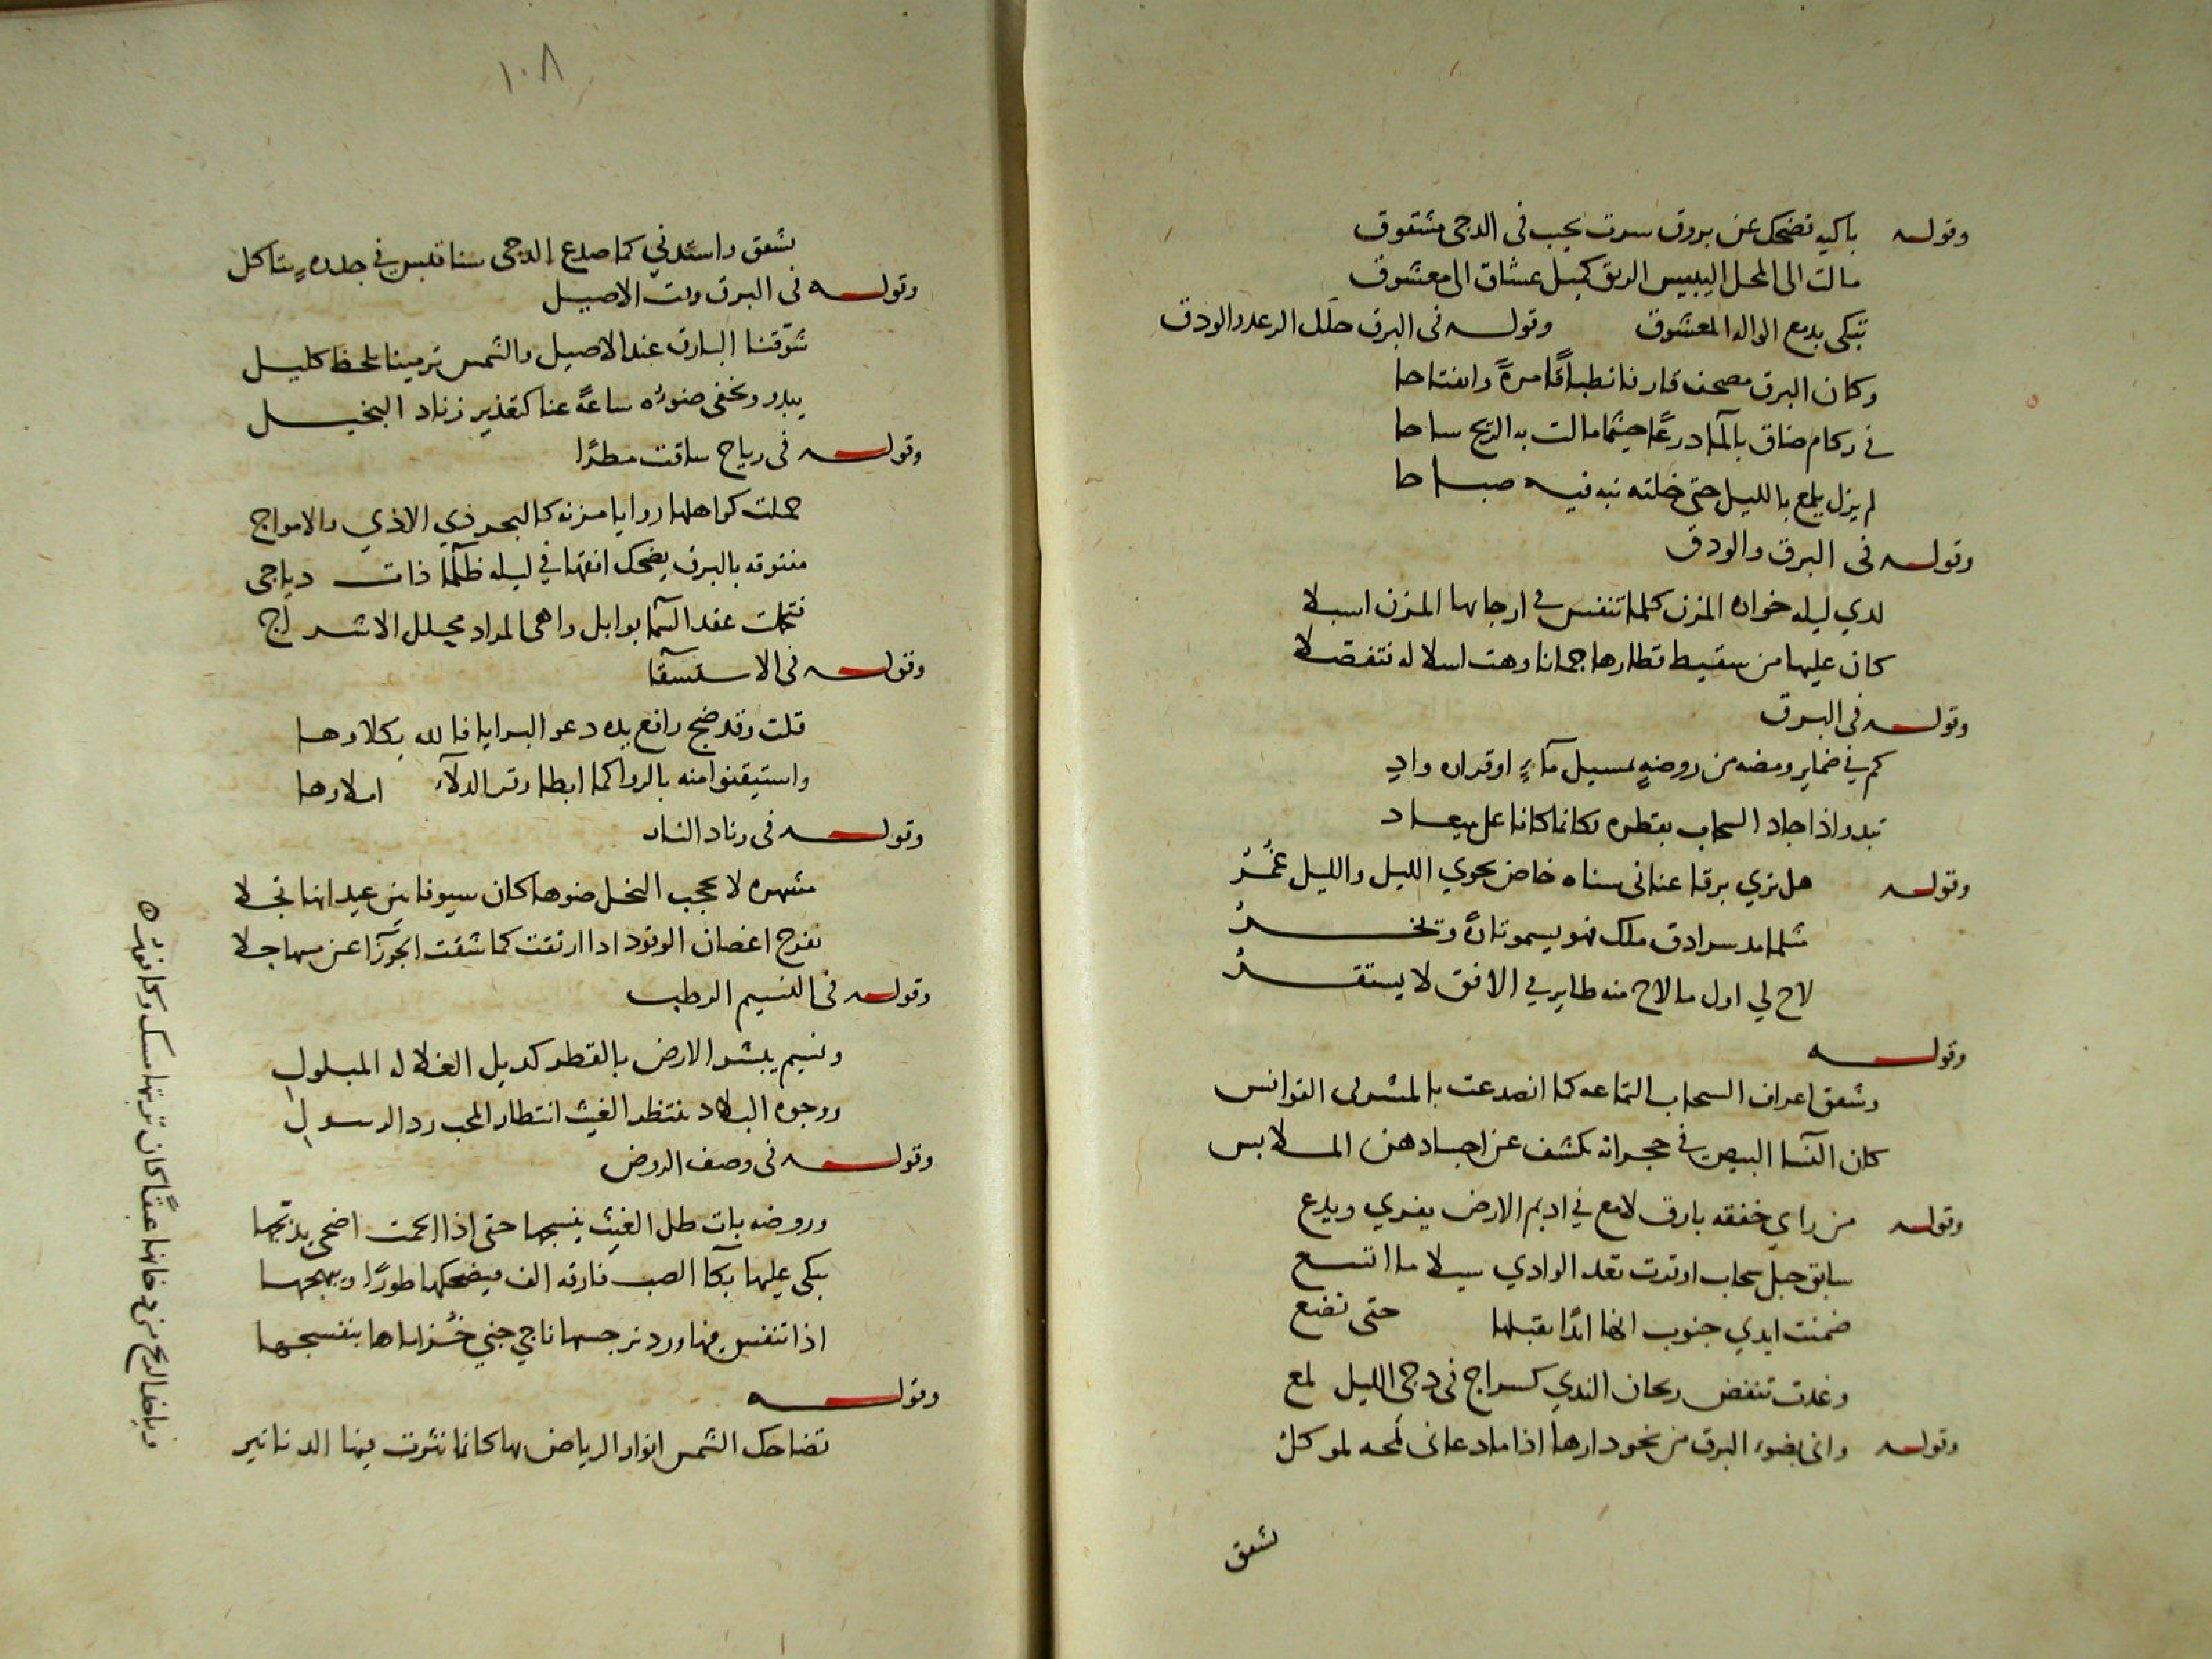 وقوله باكيه تضحك عن بروق سرت بجيب فى الدجى مشقوق
مالت الى المحل اليبيس الريق كميل عشاق الى معشوق
تبكى بدمع الواله المعشوق وقوله فى البرق خلل الرعد والودق
وكان البرق مصحف قار فانطباقًا مرةً وانفتاحا
فى ركام ضاق بالمآ درعًا حيثما مالت به الريح ساحا
لم يزل يلمع بالليل حتى خلته نبه فيه صباحا
وقوله فى البرق والودق
لدي ليله خواره المزن كلما تنفس فى ارجايها المزن اسبلا
كان عليها من سقيط قطارها جمانا وهت اسلاله فتفصلا
وقوله فى البرق
كم فى ضماير ومضه من روضةٍ بمسيل مآءٍ او قراره وادِ
تبدو اذا جاد السحاب بقطره فكانما كانا على ميعاد
وقوله هل تري برقا عنانى سناه خاض يحوي الليل والليل غمْرُ
مثلما مد سرادق ملك فهو يسمو تارةً وتخرُ
لاح لي اول ما لاح منه طاير في الافق لا يستقرُ
وقوله
وشقق اعراف السحاب التماعه كما انصدعت بالمشرفى القوانس
كان النسآ البيض فى حجراته تكشف عن اجسادهن الملابس
وقوله من راي خفقه بارق لامع في اديم الارض يفري ويدع
سابق حبل سحاب اوترت تعد الوادي سيلا ما اتسع
ضمنت ايدي جنوب انها ابدًا تقبلها حتى تضع
وغدت تنفض ريحان الندي كسراج فى دجى الليل لمع
وقوله وانى بضوء البرق من نحو دارها اذا ما دعانى لمحه لموكلُ
تشقق
١٠٨
تشقق واستدني كما صدع الدجى سنا قبس فى جلدهٍ يتاكل
وقوله فى البرق وقت الاصيل
شوّقنا البارق عند الاصيل والشمس ترمينا بلحظ كليل
يبدو ويخفى ضوءه ساعةً عنا كتقذير زناد البخيل
وقوله فى رياح ساقت مطرًا
حملت كواهلها روايا مزنه كالبحر ذي الاذي والامواج
مفتوقه بالبرق يضحك افقها في ليله ظلمآ ذات دياجى
فتحملت عقد السمآ بوابل واهى المزاد محلل الاشراج
وقوله فى الاستسقآ
قلت وقد ضج رافع يده دعو البرايا فالله يكلاوها
واستيقنوا منه بالروا كما ابطا وفر الدلآء املاوها
وقوله فى زناد النار
مشهره لا يحجب البخل ضوها كان سيوفا بين عيدانها تجلا
يفرج اغصان الوقود اذا ارتقت كما شقت الجوزآ عن سهما جلا
وقوله فى النسيم الرطب
ونسيم يبشر الارض بالقطر كديل الغلاله المبلولِ
ووجوه البلاد تنتظر الغيث انتظار المحب رد الرسولِ
وقوله فى وصف الروض
وروضه بات طل الغيث ينسجها حتى اذا التحمت اضحى يدبجها
يبكى عليها بكآ الصب فارقه الف فيضحكها طورًا ويبهجها
اذا تنفس فيها ورد نرجسها ناجي جني خُزاماها بنفسجها
وقوله
تضاحك الشمس انوار الرياض بها كانما نثرت فيها الدنانير
وياخذ الريح من دخانها عبقًا كان تربتها مسك وكافور